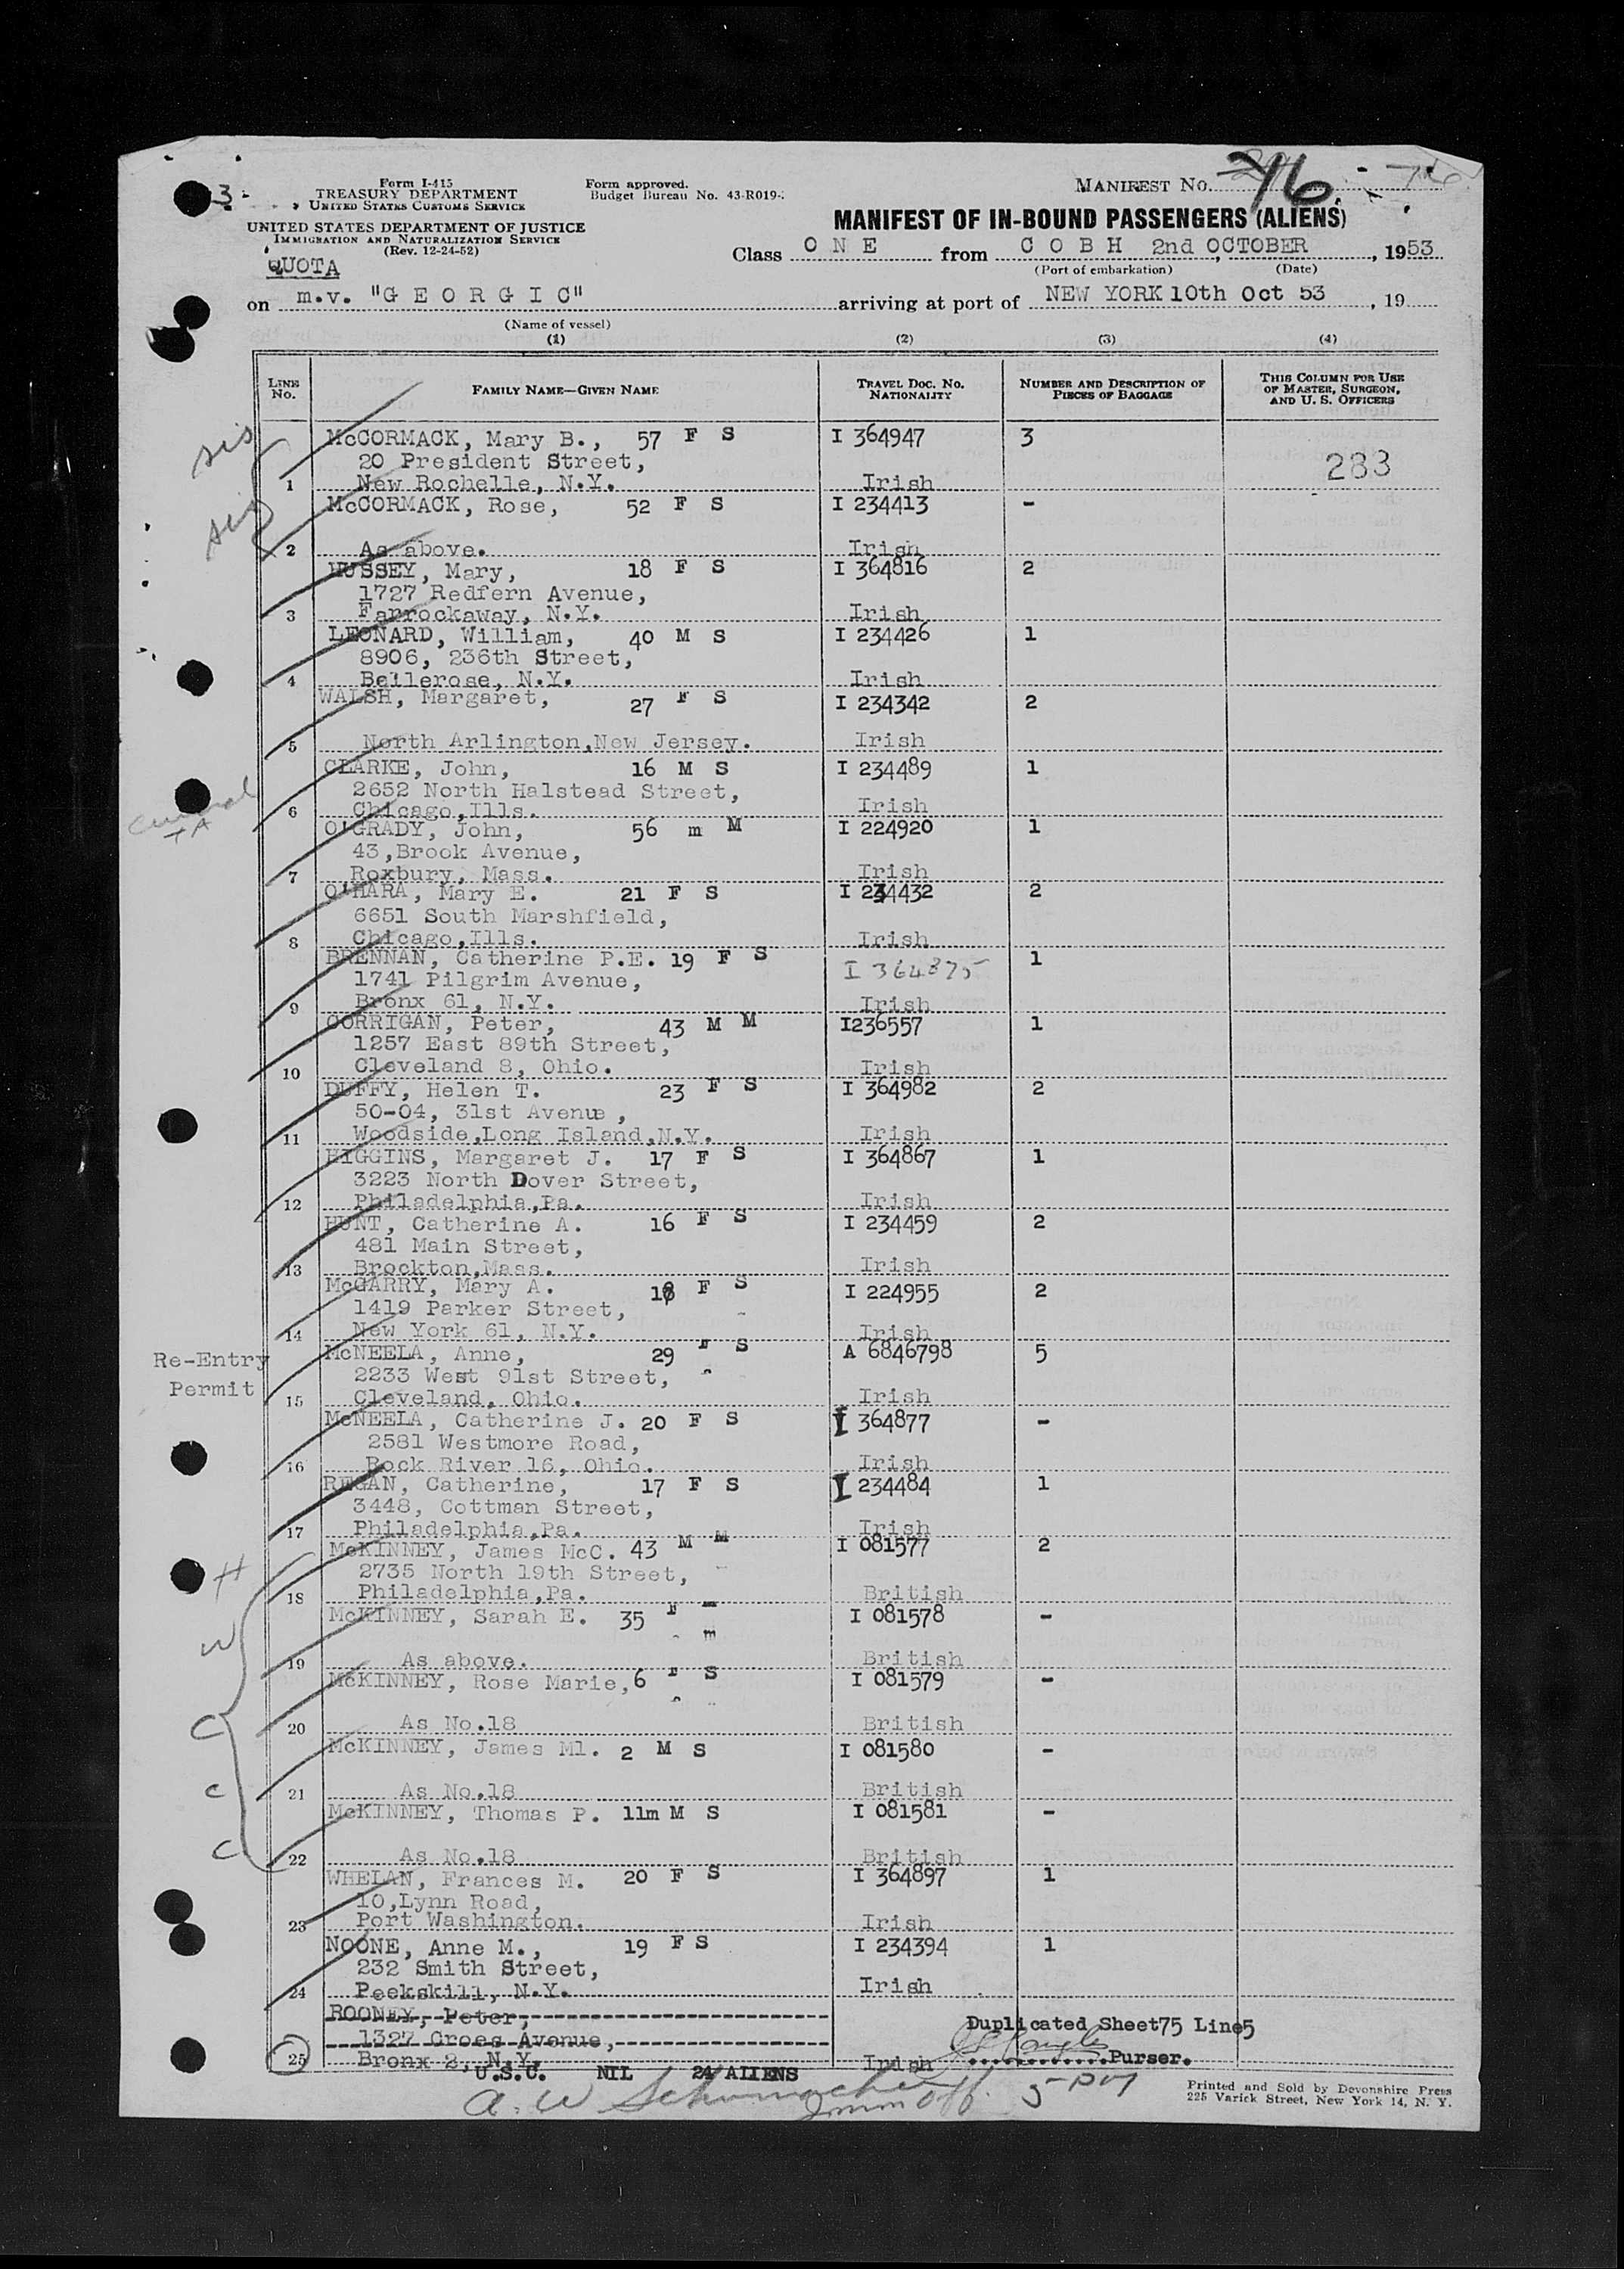 Form I-415
TREASURY DEPARTMENT
UNITED STATES CUSTOMS SERVICE
UNITED STATES DEPARTMENT OF JUSTICE
IMMIGRATION AND NATURALIZATION SERVICE
(Rev. 12-24-52)
Form approved.
Budget Bureau No. 43-R019-
MANIFEST No. 76
MANIFEST OF IN-BOUND PASSENGERS (ALIENS)
QUOTA
Class ONE from COBH 2nd OCTOBER, 1953
(Port of embarkation) (Date)
on m.v. "GEORGIC" arriving at port of NEW YORK 10th Oct 53, 19
(Name of vessel)
(1) (2) (3) (4)
LINE No. FAMILY NAME—GIVEN NAME TRAVEL DOC. NO. NATIONALITY NUMBER AND DESCRIPTION OF PIECES OF BAGGAGE THIS COLUMN FOR USE OF MASTER, SURGEON, AND U. S. OFFICERS
sis McCORMACK, Mary B., 57 F S I 364947 3
20 President Street, 283
1 New Rochelle, N.Y. Irish
sis McCORMACK, Rose, 52 F S I 234413 -
2 As above. Irish
HUSSEY, Mary, 18 F S I 364816 2
1727 Redfern Avenue,
3 Farrockaway, N.Y. Irish
LEONARD, William, 40 M S I 234426 1
8906, 236th Street,
4 Bellerose, N.Y. Irish
WALSH, Margaret, 27 F S I 234342 2
5 North Arlington,New Jersey. Irish
CLARKE, John, 16 M S I 234489 1
2652 North Halstead Street,
6 Chicago,Ills. Irish
O'GRADY, John, 56 m M I 224920 1
43,Brook Avenue,
7 Roxbury, Mass. Irish
O'HARA, Mary E. 21 F S I 234432 2
6651 South Marshfield,
8 Chicago,Ills. Irish
BRENNAN, Catherine P.E. 19 F S I 364875 1
1741 Pilgrim Avenue,
9 Bronx 61, N.Y. Irish
CORRIGAN, Peter, 43 M M I236557 1
1257 East 89th Street,
10 Cleveland 8, Ohio. Irish
DUFFY, Helen T. 23 F S I 364982 2
50-04, 31st Avenue,
11 Woodside,Long Island,N.Y. Irish
HIGGINS, Margaret J. 17 F S I 364867 1
3223 North Dover Street,
12 Philadelphia,Pa. Irish
HUNT, Catherine A. 16 F S I 234459 2
481 Main Street,
13 Brockton,Mass. Irish
McGARRY, Mary A. 18 F S I 224955 2
1419 Parker Street,
14 New York 61, N.Y. Irish
Re-Entry Permit
McNEELA, Anne, 29 F S A 6846798 5
2233 West 91st Street,
15 Cleveland, Ohio. Irish
McNEELA, Catherine J. 20 F S I 364877 -
2581 Westmore Road,
16 Rock River 16, Ohio. Irish
REGAN, Catherine, 17 F S I 234484 1
3448, Cottman Street,
17 Philadelphia,Pa. Irish
H McKINNEY, James McC. 43 M M I 081577 2
2735 North 19th Street,
18 Philadelphia,Pa. British
W McKINNEY, Sarah E. 35 F m I 081578 -
19 As above. British
C McKINNEY, Rose Marie, 6 F S I 081579 -
20 As No.18 British
C McKINNEY, James Ml. 2 M S I 081580 -
21 As No.18 British
C McKINNEY, Thomas P. 11m M S I 081581 -
22 As No.18 British
WHELAN, Frances M. 20 F S I 364897 1
10,Lynn Road,
23 Port Washington. Irish
NOONE, Anne M., 19 F S I 234394 1
232 Smith Street,
24 Peekskill, N.Y. Irish
ROONEY, Peter, Duplicated Sheet75 Line5
1327 Croes Avenue,
25 Bronx 2, N.Y. Irish Purser.
U.S.C. NIL 24 ALIENS
A. W Schumacher Imm Off. 5 PM
Printed and Sold by Devonshire Press
225 Varick Street, New York 14, N. Y.